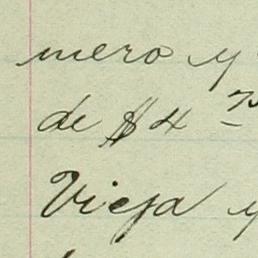 mero y
de $4
Vieja y